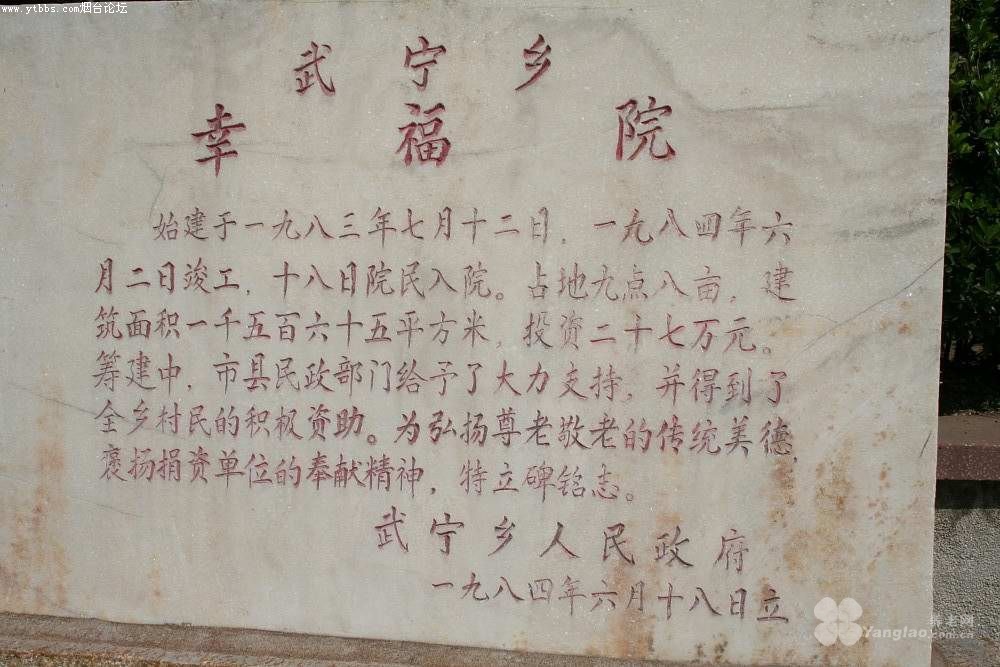 www.ytbbs.com烟台论坛
武宁乡
幸福院
始建于一九八三年七月十二日，一九八四年六
月二日竣工，十八日院民入院。占地九点八亩，建
筑面积一千五百六十五平方米，投资二十七万元。
筹建中，市县民政部门给予了大力支持，并得到了
全乡村民的积极资助。为弘扬尊老敬老的传统美德，
褒扬捐资单位的奉献精神，特立碑铭志。
武宁乡人民政府
一九八四年六月十八日立
养老网
Yanglao.com.cn